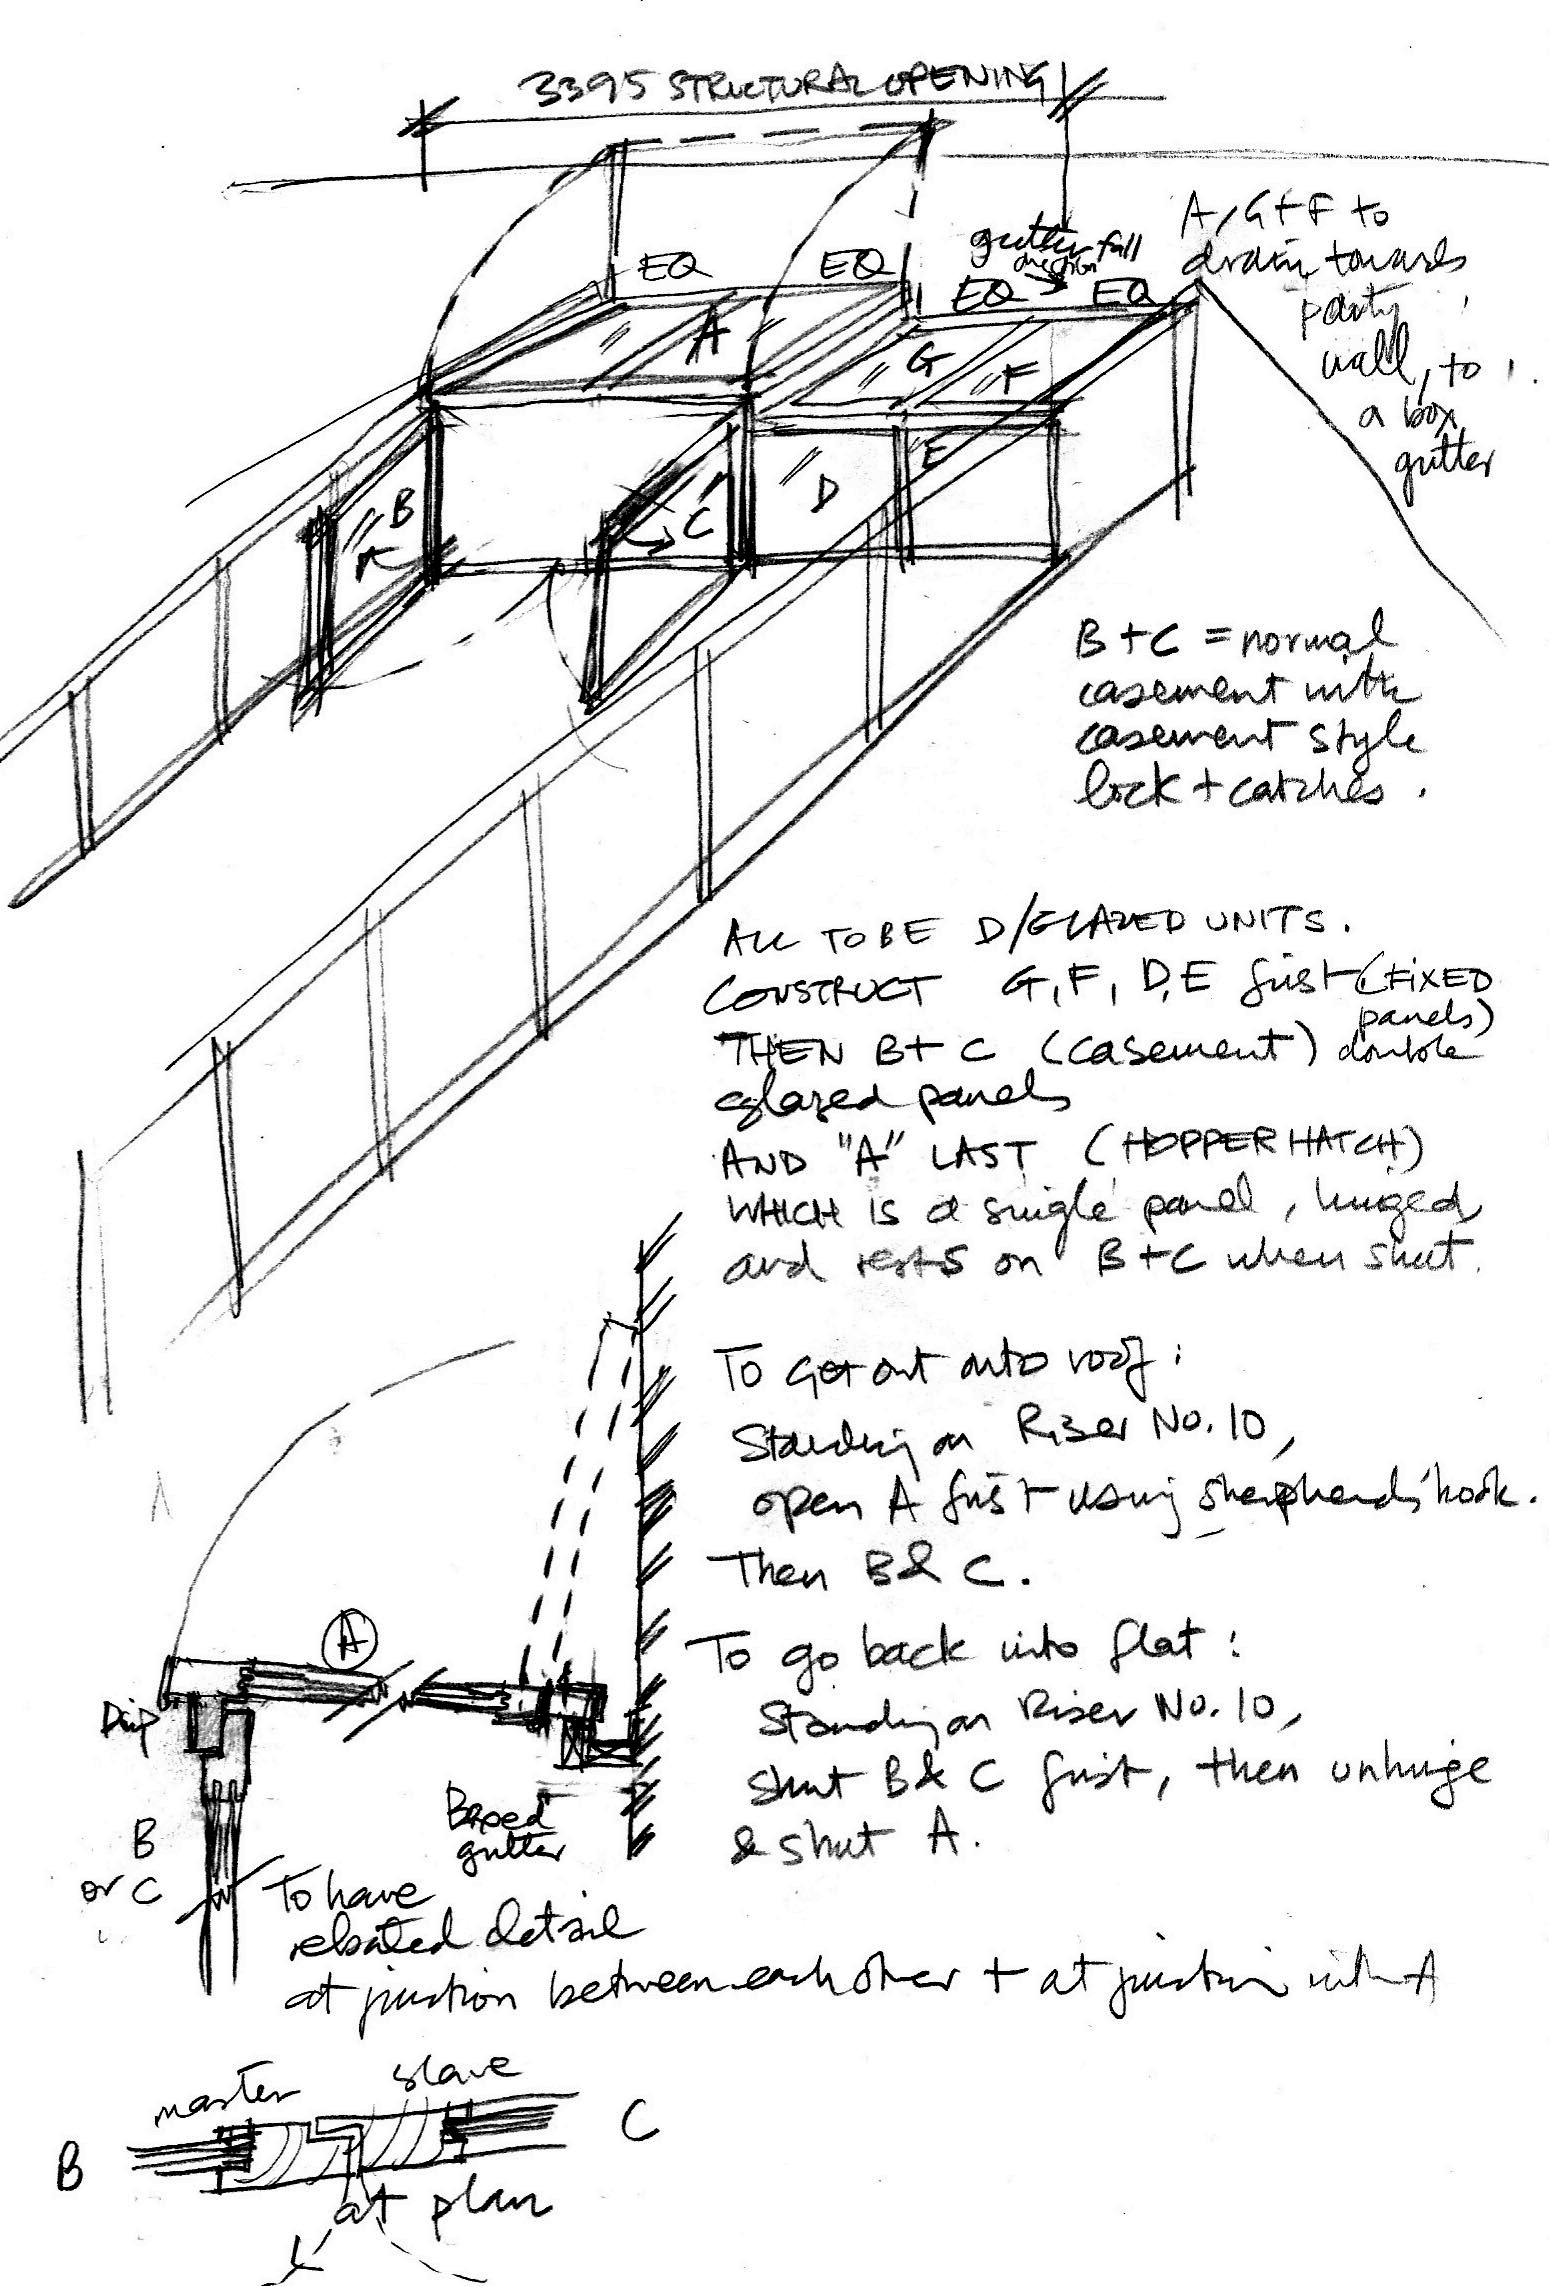 3395 STRUCTURAL OPENING
A, G + F to
drain towards
party
wall, to
a box
gutter
gutter fall
direction
EQ EQ EQ EQ
A
G
F
B
C
D
E
B + C = normal
casement with
casement style
lock + catches.
ALL TO BE D/GLAZED UNITS.
CONSTRUCT G, F, D, E first (FIXED
panels)
THEN B + C (casement) double
glazed panels
AND "A" LAST (HOPPER HATCH)
WHICH IS a single panel, hinged
and rests on B + C when shut.
To Get out onto roof:
Standing on Riser No. 10,
open A first using shepherds' hook.
Then B & C.
To go back into flat:
Standing on Riser No. 10,
shut B & C first, then unhinge
& shut A.
A
Drip
Boxed
gutter
B
or C
To have
rebated detail
at junction between each other + at junction with A
master
slave
B
C
at plan